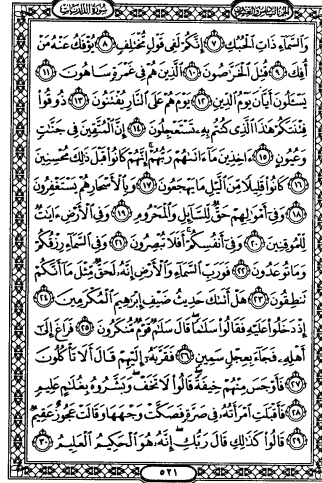 الجزء السادس والعشرون سورة الذاريات
وَالسَّمَاءِ ذَاتِ الْحُبُكِ ٧ إِنَّكُمْ لَفِي قَوْلٍ مُّخْتَلِفٍ ٨ يُؤْفَكُ عَنْهُ مَنْ
أُفِكَ ٩ قُتِلَ الْخَرَّاصُونَ ١٠ الَّذِينَ هُمْ فِي غَمْرَةٍ سَاهُونَ ١١
يَسْـَٔلُونَ أَيَّانَ يَوْمُ الدِّينِ ١٢ يَوْمَ هُمْ عَلَى النَّارِ يُفْتَنُونَ ١٣ ذُوقُوا
فِتْنَتَكُمْ هَٰذَا الَّذِي كُنتُم بِهِ تَسْتَعْجِلُونَ ١٤ إِنَّ الْمُتَّقِينَ فِي جَنَّاتٍ
وَعُيُونٍ ١٥ ءَاخِذِينَ مَا ءَاتَاهُمْ رَبُّهُمْ إِنَّهُمْ كَانُوا قَبْلَ ذَٰلِكَ مُحْسِنِينَ
١٦ كَانُوا قَلِيلًا مِّنَ اللَّيْلِ مَا يَهْجَعُونَ ١٧ وَبِالْأَسْحَارِ هُمْ يَسْتَغْفِرُونَ
١٨ وَفِي أَمْوَالِهِمْ حَقٌّ لِّلسَّائِلِ وَالْمَحْرُومِ ١٩ وَفِي الْأَرْضِ ءَايَاتٌ
لِّلْمُوقِنِينَ ٢٠ وَفِي أَنفُسِكُمْ أَفَلَا تُبْصِرُونَ ٢١ وَفِي السَّمَاءِ رِزْقُكُمْ
وَمَا تُوعَدُونَ ٢٢ فَوَرَبِّ السَّمَاءِ وَالْأَرْضِ إِنَّهُ لَحَقٌّ مِّثْلَ مَا أَنَّكُمْ
تَنطِقُونَ ٢٣ هَلْ أَتَاكَ حَدِيثُ ضَيْفِ إِبْرَاهِيمَ الْمُكْرَمِينَ ٢٤
إِذْ دَخَلُوا عَلَيْهِ فَقَالُوا سَلَامًا قَالَ سَلَامٌ قَوْمٌ مُّنكَرُونَ ٢٥ فَرَاغَ إِلَىٰ
أَهْلِهِ فَجَاءَ بِعِجْلٍ سَمِينٍ ٢٦ فَقَرَّبَهُ إِلَيْهِمْ قَالَ أَلَا تَأْكُلُونَ
٢٧ فَأَوْجَسَ مِنْهُمْ خِيفَةً قَالُوا لَا تَخَفْ وَبَشَّرُوهُ بِغُلَامٍ عَلِيمٍ
٢٨ فَأَقْبَلَتِ امْرَأَتُهُ فِي صَرَّةٍ فَصَكَّتْ وَجْهَهَا وَقَالَتْ عَجُوزٌ عَقِيمٌ
٢٩ قَالُوا كَذَٰلِكِ قَالَ رَبُّكِ إِنَّهُ هُوَ الْحَكِيمُ الْعَلِيمُ ٣٠
٥٢١